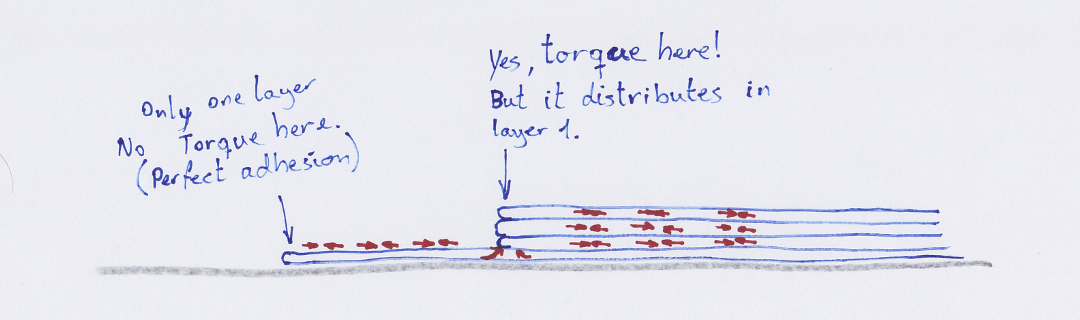 Only one layer
No Torque here.
(Perfect adhesion)
Yes, torque here!
But it distributes in
layer 1.